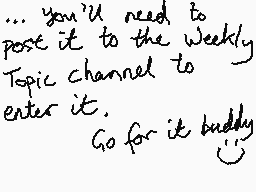 ... you'll need to
post it to the Weekly
Topic channel to
enter it.
Go for it buddy